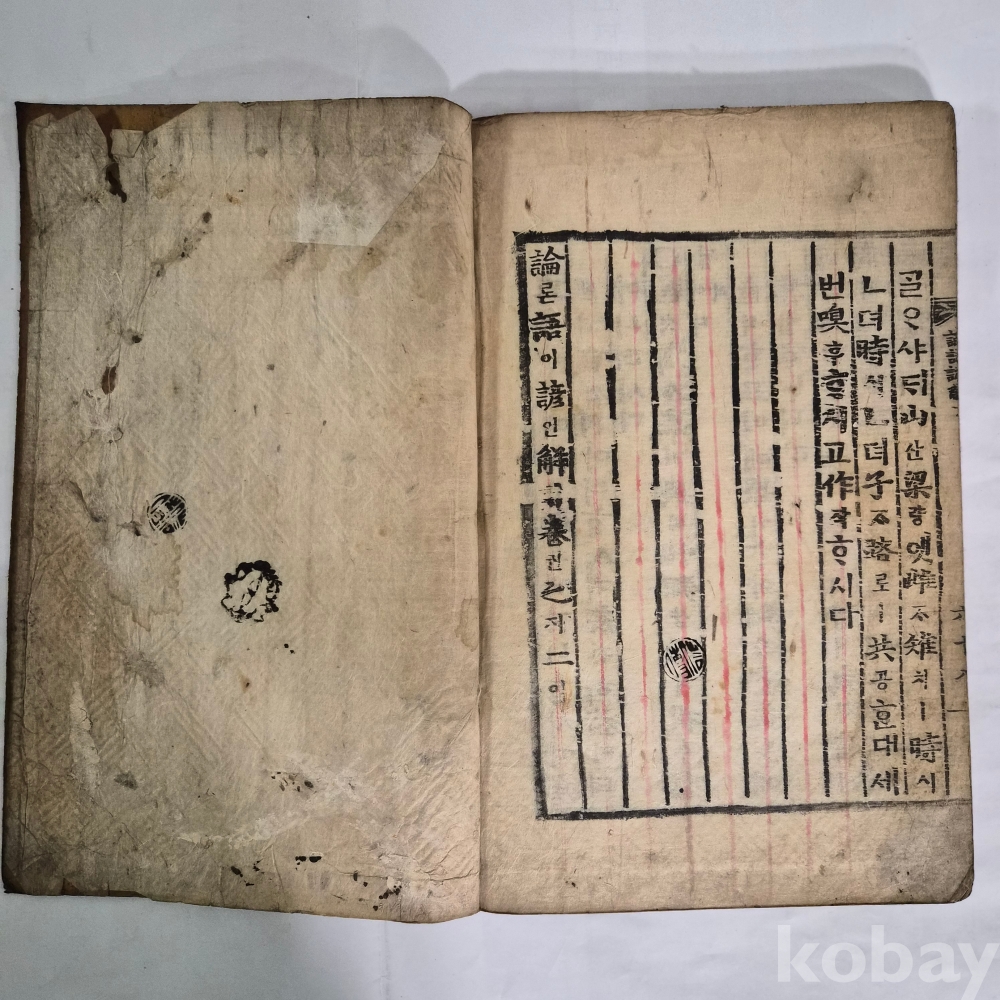 ᄀᆞᆯᄋᆞ샤ᄃᆡ山산梁량엣雌ᄌᆞ雉치ㅣ時시
ㄴ뎌時시ㄴ뎌子ᄌᆞ路로ㅣ共공ᄒᆞᆫ대세
번嗅후ᄒᆞ고作작ᄒᆞ시다
論론語어諺언解ᄒᆡ卷권之지二이
kobay